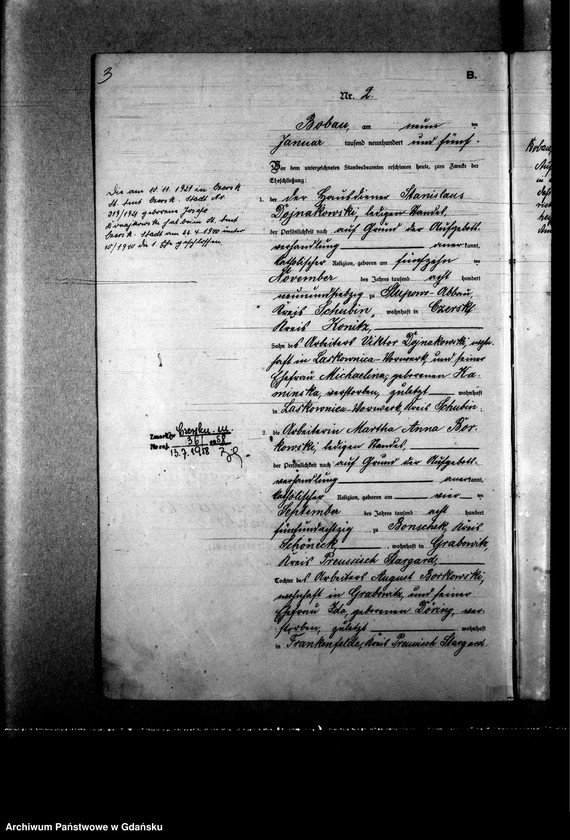 3
B.
Nr. 2.
Bobau, am neun ten
Januar tausend neunhundert und fünf.
Vor dem unterzeichneten Standesbeamten erschienen heute, zum Zwecke der
Eheschließung:
1. der der Hausdiener Stanislaus
Dojnakowski, ledigen Standes,
der Persönlichkeit nach auf Grund der Aufgebots-
verhandlung anerkannt,
katholischer Religion, geboren am fünfzehn ten
November des Jahres tausend acht hundert
neunundsiebzig zu Slupowo-Abbau,
Kreis Schubin, wohnhaft in Czersk,
Kreis Konitz,
Sohn des Arbeiters Viktor Dojnakowski, wohn-
haft in Laskownica-Vorwerk, und seiner
Ehefrau Michaelina, geborenen Ka-
minska, verstorben, zuletzt wohnhaft
in Laskownica-Vorwerk, Kreis Schubin.
2. die Arbeiterin Martha Anna Bor-
kowski, ledigen Standes,
der Persönlichkeit nach auf Grund der Aufgebots-
verhandlung anerkannt,
katholischer Religion, geboren am vier ten
September des Jahres tausend acht hundert
fünfundachtzig zu Bonschek, Kreis
Schöneck, wohnhaft in Grabowitz,
Kreis Preussisch Stargard,
Tochter des Arbeiters August Borkowski,
wohnhaft in Grabowitz, und seiner
Ehefrau Ida, geborenen Döring, ver-
storben, zuletzt wohnhaft
in Frankenfelde, Kreis Preussisch Stargard.
Die am 10.11.1921 in Czersk
St. Amt Czersk-Stadt Nr.
geborene
hat beim St. Amt
Czersk-Stadt am 1940 unter
10/1940 die 1. Ehe geschlossen
Zmarł
Czersku
Nr akt 36/1958
13.7.1958
Archiwum Państwowe w Gdańsku